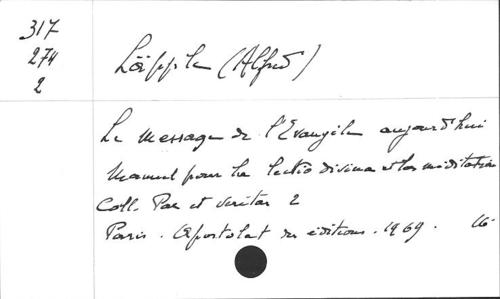 317
274
2
Läpple (Alfred)
Le message de l'Evangile aujourd'hui
Manuel pour la lectio divina et la méditation
Coll. Pax et veritas 2
Paris. Apostolat des éditions. 1969.